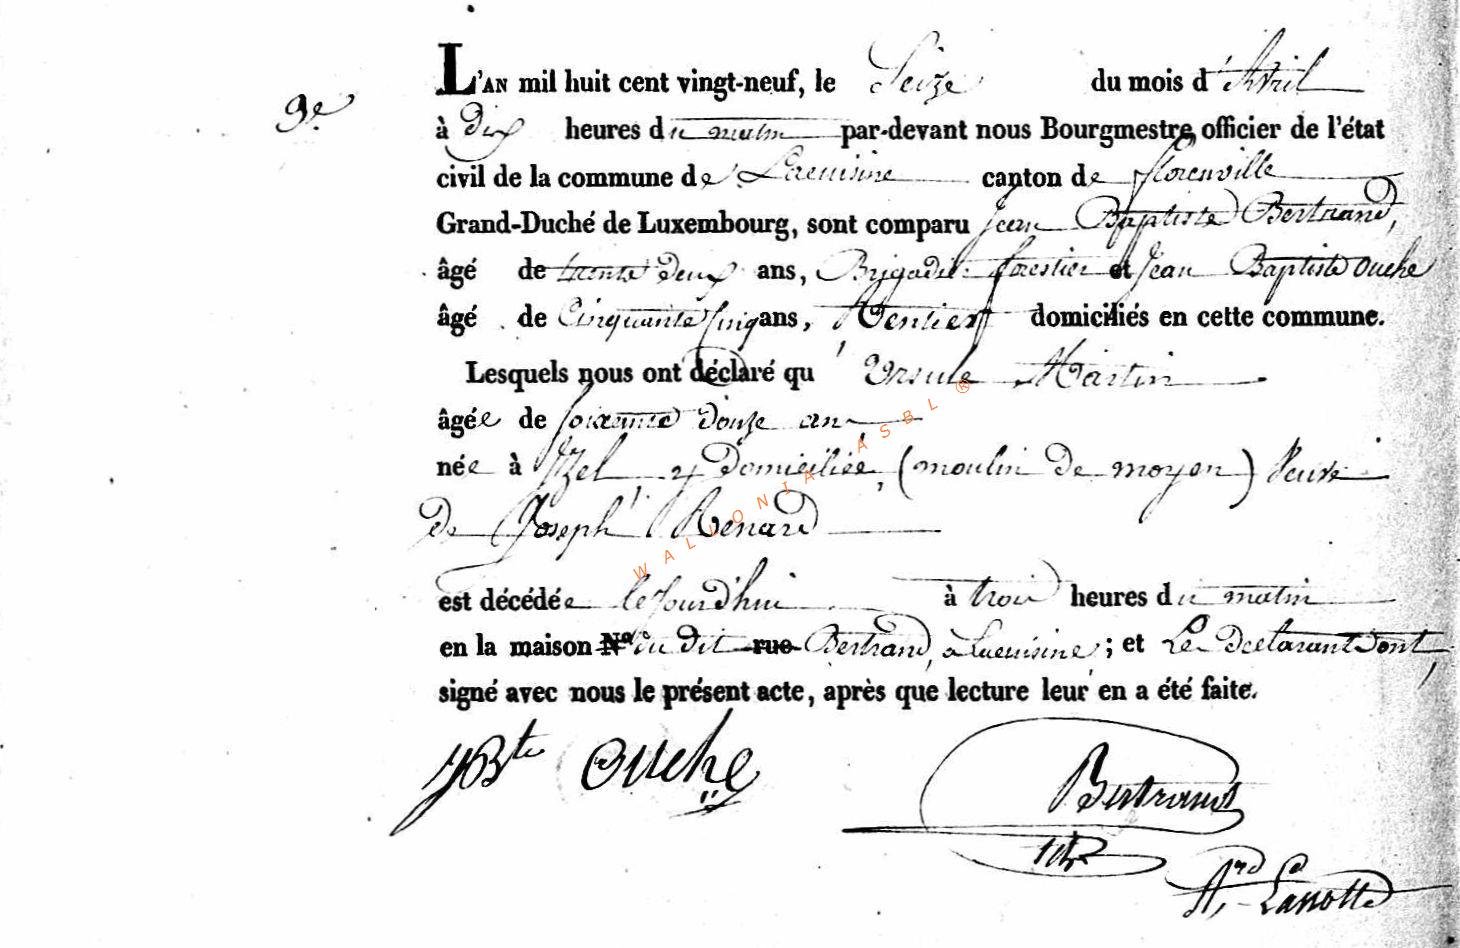 9e
L'AN mil huit cent vingt-neuf, le Seize du mois d'Avril
à dix heures du matin par-devant nous Bourgmestre, officier de l'état
civil de la commune de Lacuisine canton de florenville
Grand-Duché de Luxembourg, sont comparu Jean Baptiste Bertrand,
âgé de trente deux ans, Brigadier forestier et Jean Baptiste Ouche
âgé de Cinquante Cinq ans, Rentier domiciliés en cette commune.
Lesquels nous ont déclaré qu'Ursule Martin
âgée de soixante douze ans
née à Izel, y domiciliée, (moulin de moyen) veuve
de Joseph Renard
est décédée cejourd'hui à trois heures du matin
en la maison N° du dit rue Bertrand, à Lacuisine; et Les Declarants ont
signé avec nous le présent acte, après que lecture leur en a été faite.
JBte Ouche
Bertrand
Lassotte
WALLONIA ASBL ®